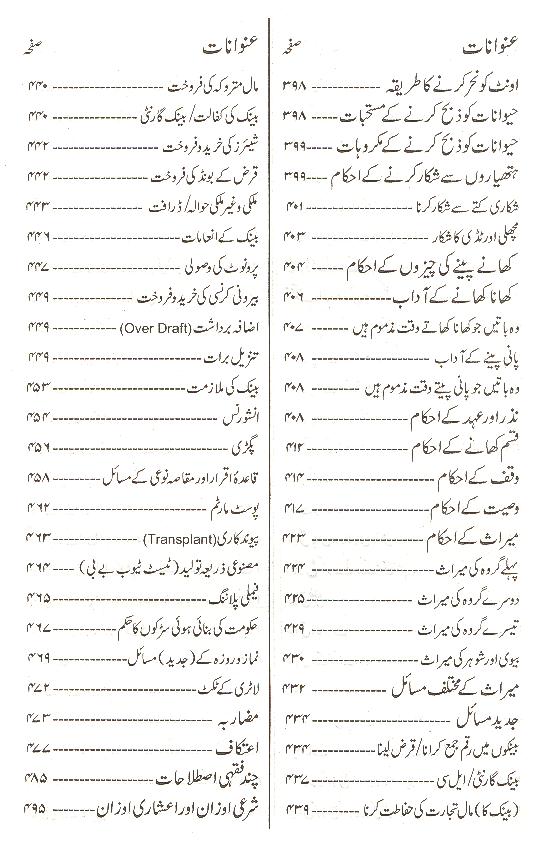 عنوانات صفحہ
اونٹ کو نحر کرنے کا طریقہ ---------- ۳۹۸
حیوانات کو ذبح کرنے کے مستحبات ------ ۳۹۸
حیوانات کو ذبح کرنے کے مکروہات ----- ۳۹۹
ہتھیاروں سے شکار کرنے کے احکام ---- ۳۹۹
شکاری کتے سے شکار کرنا ---------- ۴۰۱
مچھلی اور ٹڈی کا شکار ---------- ۴۰۳
کھانے پینے کی چیزوں کے احکام ----- ۴۰۴
کھانا کھانے کے آداب ---------- ۴۰۶
وہ باتیں جو کھانا کھاتے وقت مذموم ہیں ------ ۴۰۷
پانی پینے کے آداب ---------- ۴۰۸
وہ باتیں جو پانی پیتے وقت مذموم ہیں ------- ۴۰۸
نذر اور عہد کے احکام ---------- ۴۰۸
قسم کھانے کے احکام ---------- ۴۱۲
وقف کے احکام ---------- ۴۱۴
وصیت کے احکام ---------- ۴۱۷
میراث کے احکام ---------- ۴۲۳
پہلے گروہ کی میراث ---------- ۴۲۴
دوسرے گروہ کی میراث ---------- ۴۲۵
تیسرے گروہ کی میراث ---------- ۴۲۹
بیوی اور شوہر کی میراث ---------- ۴۳۰
میراث کے مختلف مسائل ---------- ۴۳۲
جدید مسائل ---------- ۴۳۴
بینکوں میں رقم جمع کرانا/ قرض لینا ------- ۴۳۴
بینک گارنٹی/ ایل سی ---------- ۴۳۷
(بینک کا) مال تجارت کی حفاظت کرنا ------- ۴۳۹
عنوانات صفحہ
مال متروکہ کی فروخت ---------- ۴۴۰
بینک کی کفالت/ بینک گارنٹی ---------- ۴۴۰
شیئرز کی خرید و فروخت ---------- ۴۴۲
قرض کے بونڈ کی فروخت ---------- ۴۴۲
ملکی و غیر ملکی حوالہ/ ڈرافت ---------- ۴۴۳
بینک کے انعامات ---------- ۴۴۶
پرونوٹ کی وصولی ---------- ۴۴۷
بیرونی کرنسی کی خرید و فروخت ---------- ۴۴۹
اضافہ برداشت (Over Draft) ---------- ۴۴۹
تنزیل برات ---------- ۴۴۹
بینک کی ملازمت ---------- ۴۵۳
انشورنس ---------- ۴۵۴
پگڑی ---------- ۴۵۶
قاعدۂ اقرار اور مقاصہ نوعی کے مسائل ------- ۴۵۸
پوسٹ مارٹم ---------- ۴۶۲
پیوند کاری (Transplant) ---------- ۴۶۳
مصنوعی ذریعہ تولید (ٹیسٹ ٹیوب بے بی) ---- ۴۶۴
فیملی پلاننگ ---------- ۴۶۵
حکومت کی بنائی ہوئی سڑکوں کا حکم ------- ۴۶۷
نماز و روزہ کے (جدید) مسائل ---------- ۴۶۹
لاٹری کے ٹکٹ ---------- ۴۷۲
مضاربہ ---------- ۴۷۳
اعتکاف ---------- ۴۷۷
چند فقہی اصطلاحات ---------- ۴۸۵
شرعی اوزان اور اعشاری اوزان ------- ۴۹۵